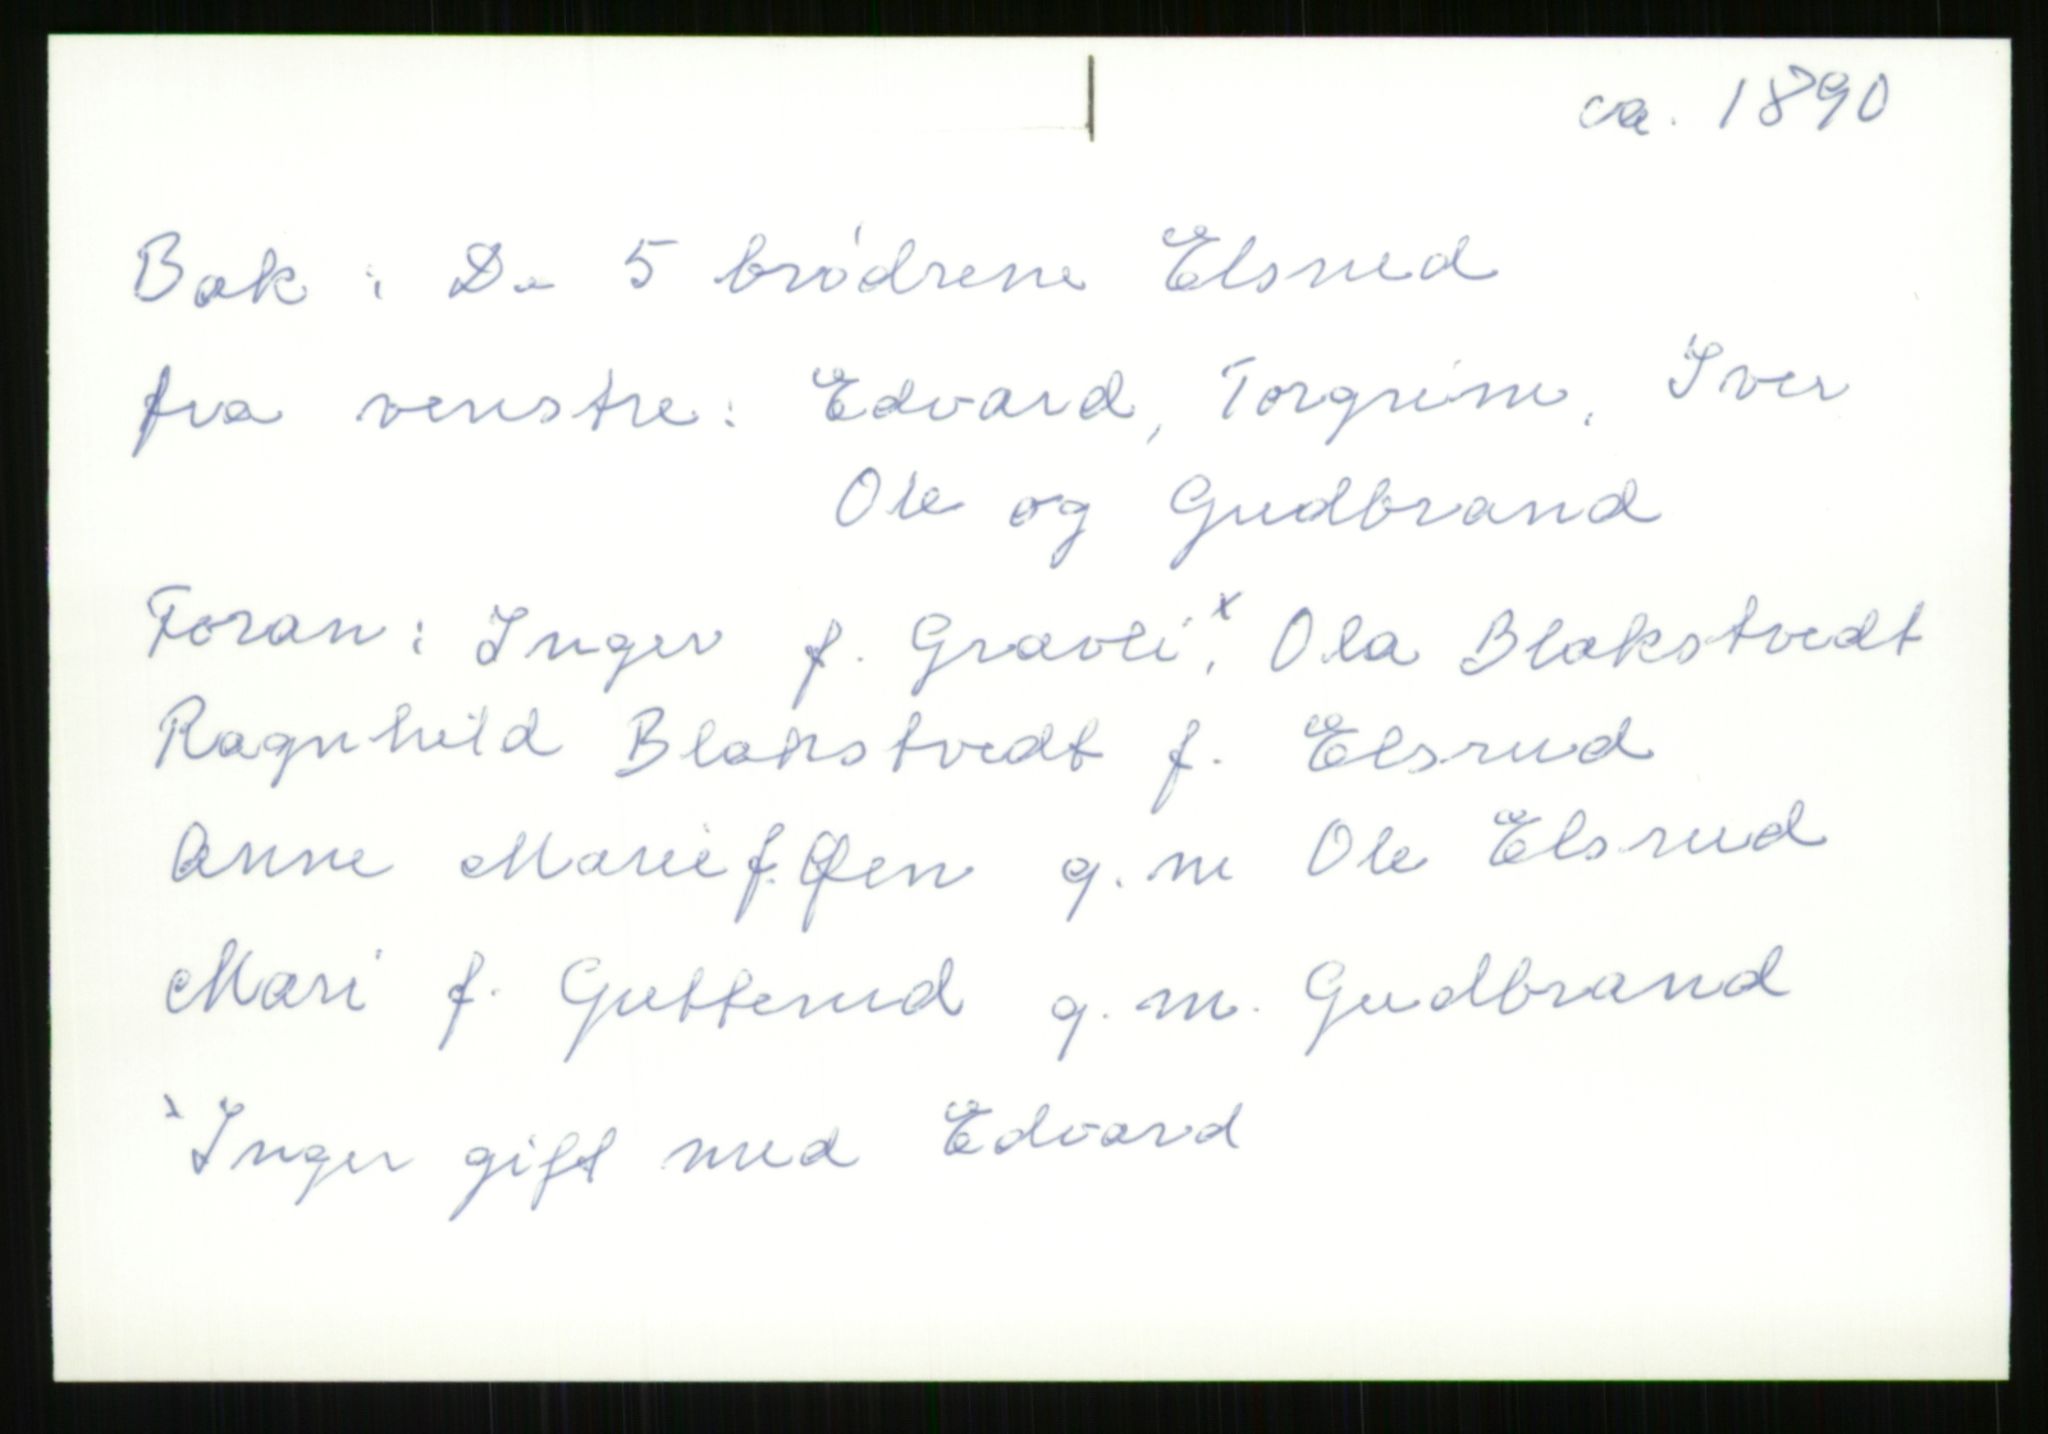 ca. 1890
Bak: De 5 brødrene Elsrud
fra venstre: Edvard, Torgrim, Iver
Ole og Gudbrand
Foran: Inger f. Gravli x, Ola Blakstvedt
Ragnhild Blakstvedt f. Elsrud
Anne Marie f. Øen g.m Ole Elsrud
Mari f. Gutterud g.m. Gudbrand
x Inger gift med Edvard